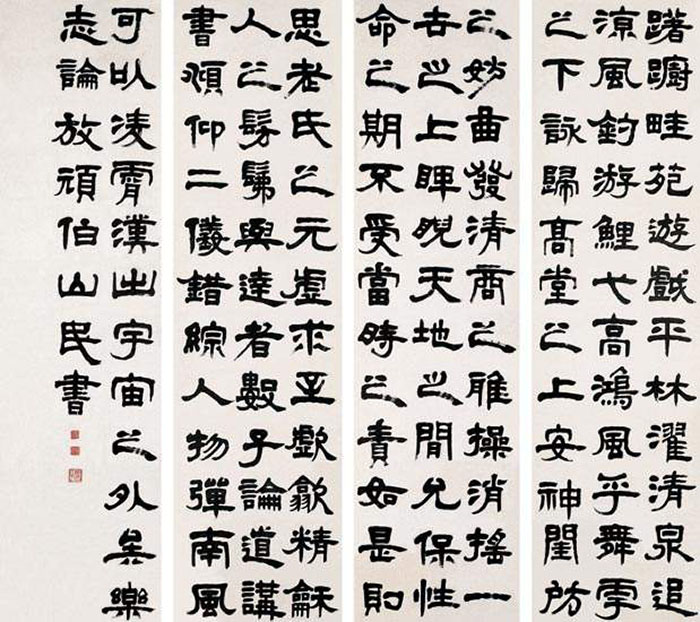 躇躕畦苑遊戲平林濯清泉追
涼風釣游鯉弋高鴻風乎舞雩
之下詠歸高堂之上安神閨房
思老氏之元虛求至歔歙精龢
人之髣髴與達者數子論道講
書頫仰二儀錯綜人物彈南風
之妙曲發清商之雅操消搖一
世之上睥睨天地之間允保性
命之期不受當時之責如是則
可以凌霄漢出宇宙之外矣樂
志論放頑伯山民書